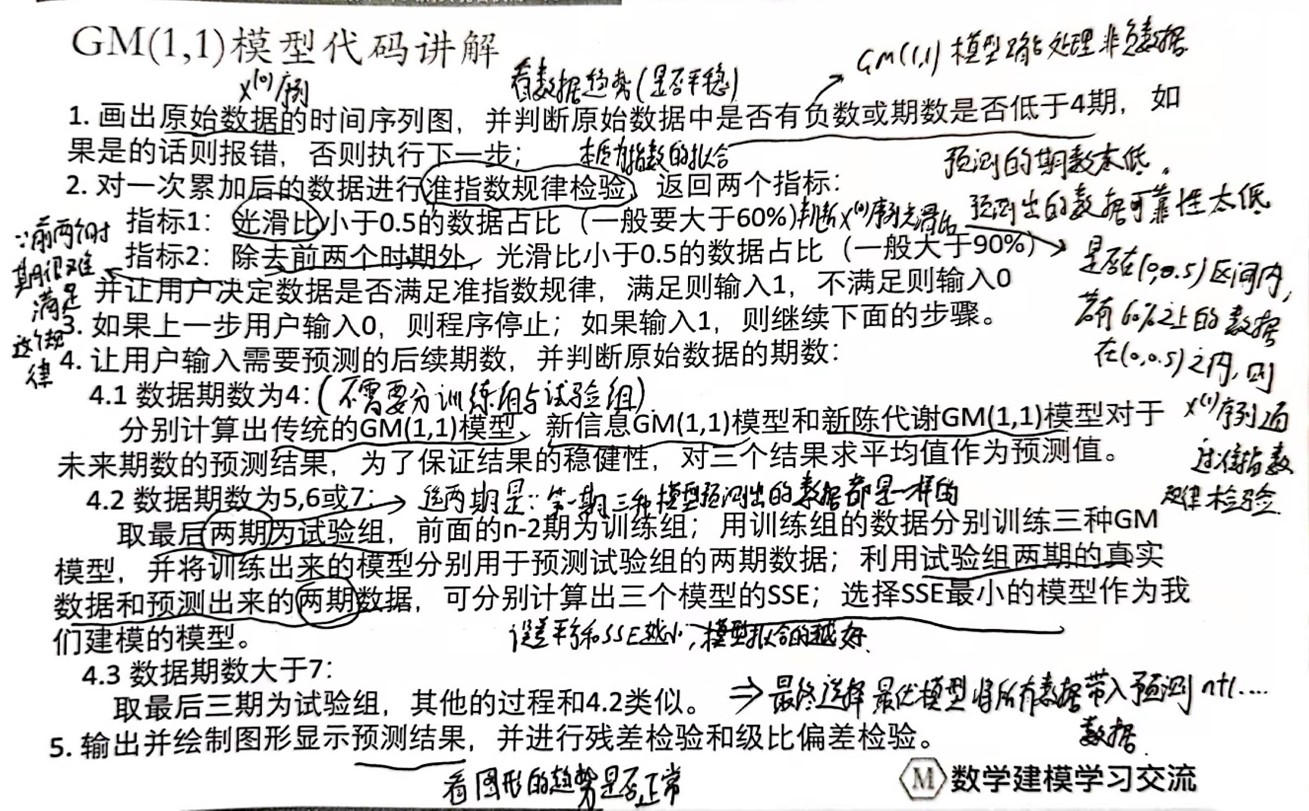 GM(1,1)模型代码讲解
x⁽⁰⁾序列
看数据趋势(是否平稳)
GM(1,1)模型只能处理非负数据
1. 画出原始数据的时间序列图，并判断原始数据中是否有负数或期数是否低于4期，如
果是的话则报错，否则执行下一步；
本质为指数的拟合
预测的期数太低，
预测出的数据可靠性太低
2. 对一次累加后的数据进行准指数规律检验，返回两个指标：
指标1：光滑比小于0.5的数据占比（一般要大于60%)
判断x⁽¹⁾序列光滑比
是否在(0,0.5)区间内，
若有60%之上的数据
在(0,0.5)之内，则
x⁽¹⁾序列通
过准指数
规律检验
指标2：除去前两个时期外，光滑比小于0.5的数据占比（一般大于90%）
∵前两个时
期很难
满足
这个规
律
并让用户决定数据是否满足准指数规律，满足则输入1，不满足则输入0
3. 如果上一步用户输入0，则程序停止；如果输入1，则继续下面的步骤。
4. 让用户输入需要预测的后续期数，并判断原始数据的期数：
4.1 数据期数为4：
(不需要分训练组与试验组)
分别计算出传统的GM(1,1)模型、新信息GM(1,1)模型和新陈代谢GM(1,1)模型对于
未来期数的预测结果，为了保证结果的稳健性，对三个结果求平均值作为预测值。
4.2 数据期数为5,6或7：
两期是∵第一期三种模型预测出的数据都是一样的
取最后两期为试验组，前面的n-2期为训练组；用训练组的数据分别训练三种GM
模型，并将训练出来的模型分别用于预测试验组的两期数据；利用试验组两期的真实
数据和预测出来的两期数据，可分别计算出三个模型的SSE；选择SSE最小的模型作为我
们建模的模型。
误差平方和SSE越小，模型拟合的越好
4.3 数据期数大于7：
取最后三期为试验组，其他的过程和4.2类似。
⇒最终选择最优模型将所有数据带入预测n+1....
数据
5. 输出并绘制图形显示预测结果，并进行残差检验和级比偏差检验。
看图形的趋势是否正常
M 数学建模学习交流